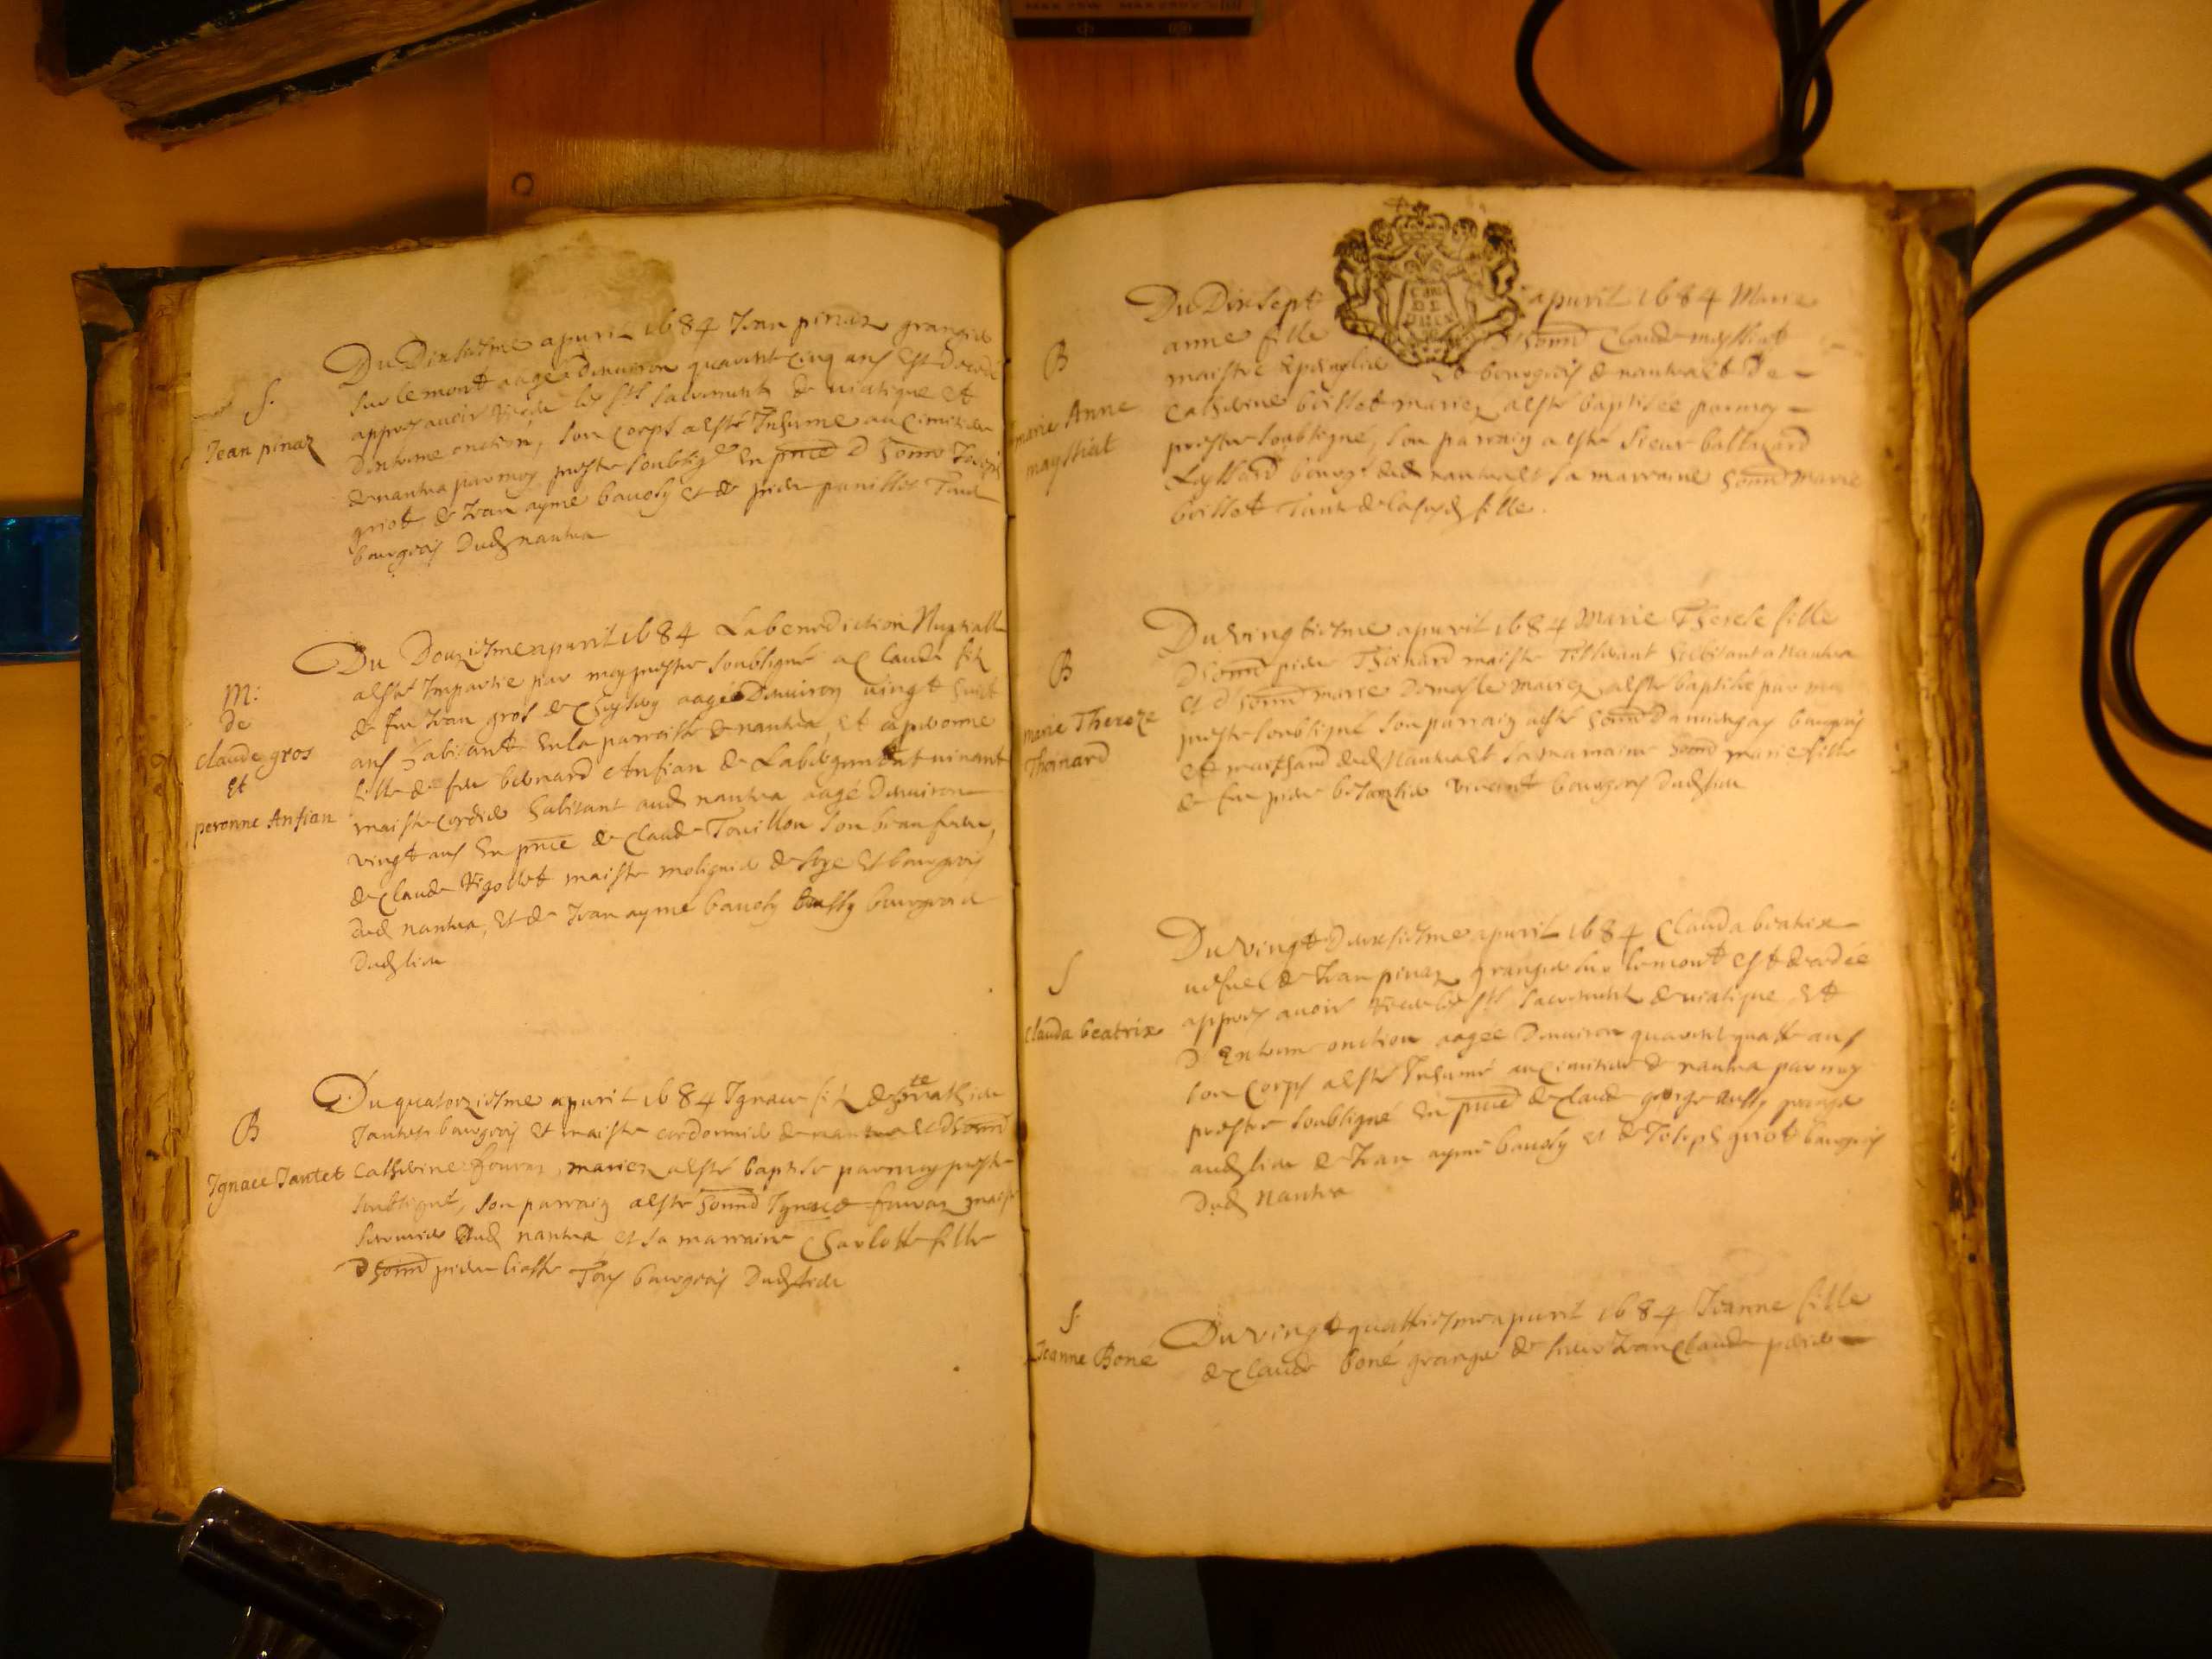 S.
Jean pinaz
Du Dixsiesme apuril 1684 Jean pinaz grangier
sur le mont aagé denuiron quarente cinq ans est decedé
appres auoir les sts sacrements de uiatique et
dextreme onction, son corps a esté Inhumé au cimitiere
de nantua par moy prestre soubsigné En pnce d honno Joseph
griot, de Jean ayme bauosy et de piere Tous
bourgeois Dud nantua
M:
de
claude gros
Et
peronne Ansian
Du Douziesme apuril 1684 La benediction Nuptialle
a esté Impartie par moy prestre soubsigné a Claude fils
de feu Jean gros de aagé Denuiron uingt huict
ans habitant En la parroisse de nantua, et a peronne
fille de feu bernard Ansian de uiuant
maistre cordier habitant aud nantua aagé Denuiron
vingt ans En pnce de Claude Touillon son beau frere,
de Claude maistre de soye Et bourgeois
dud nantua, Et de Jean aymé bauosy bourgeois
Dud lieu
B
Ignace Jantet
Du quatorziesme apuril 1684 Ignace fils de
Jantet bourgeois et maistre cordonnier de nantua et d honno
Catherine fouraz, mariez a esté baptisé par moy prestre
soubsigné, son parrain a esté honno Ignace fouraz
dud nantua et sa marraine Charlotte fille
d honno piere Tous bourgeois Dud lieu
B
marie Anne
maysstiat
Du Dixsept apuril 1684 Marie
anne fille d honno Claude mayssiat
maistre Epinglier Et bourgeois de nantua Et De
Catherine boisset mariez a esté baptisée par moy
prestre soubsigné, son parrain a esté sieur baltazard
bourgs dud nantua Et sa marraine honno Marie
boisset Tante de lasusd fille.
B
marie Thereze
Thoinard
Du vingtiesme apuril 1684 Marie Therese fille
D honno piere Thoinard maistre habitant a Nantua
et d honno marie mariez, a esté baptisée par moy
prestre soubsigné son parrain a esté honno bourgeois
et marchand dud Nantua Et sa marraine honno marie fille
de feu piere viuant bourgeois Dud lieu
S
Clauda beatrix
Du vingt Deuxsiesme apuril 1684 Clauda beatrix
uefue de Jean pinaz grangier sur le mont est decedée
appres auoir les sts sacrements de uiatique Et
D Extreme onction aagée Denuiron quarente quatre ans
son corps a esté Inhumé au cimitiere de nantua par moy
prestre soubsigné En pnce de Claude george
aud lieu de Jean aymé bauosy et de Joseph griot bourgeois
Dud Nantua
S.
Jeanne Boné
Du vingt quattriesme apuril 1684 Jeanne fille
de Claude boné granger de sieur Jean Claude